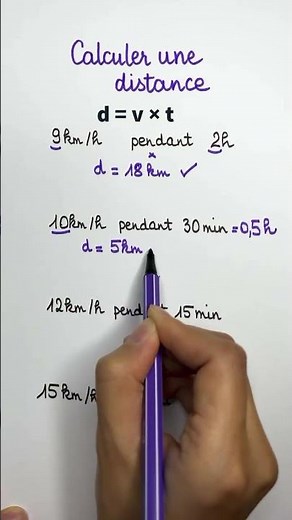 Calculer une
distance
d = v × t
9km/h pendant 2h
×
d = 18 km ✓
10km/h pendant 30min = 0,5h
d = 5km
12km/h pend 15min
15km/h